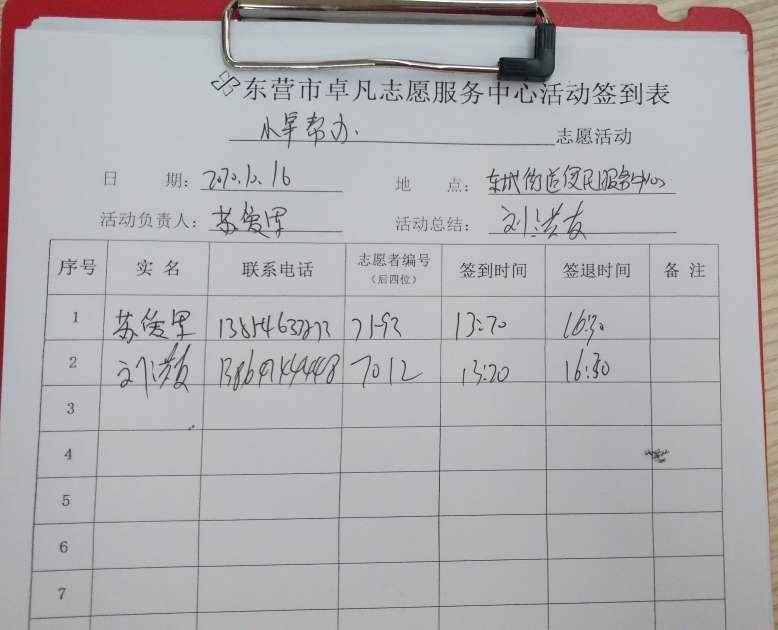 东营市卓凡志愿服务中心活动签到表
小草帮办 志愿活动
日 期: 2020.10.16 地 点: 东城街道便民服务中心
活动负责人: 苏俊军 活动总结: 刘洪友
序号 实 名 联系电话 志愿者编号 签到时间 签退时间 备 注
(后四位)
1 苏俊军 13:20 16:30
2 刘洪友 7012 13:20 16:30
3
4
5
6
7